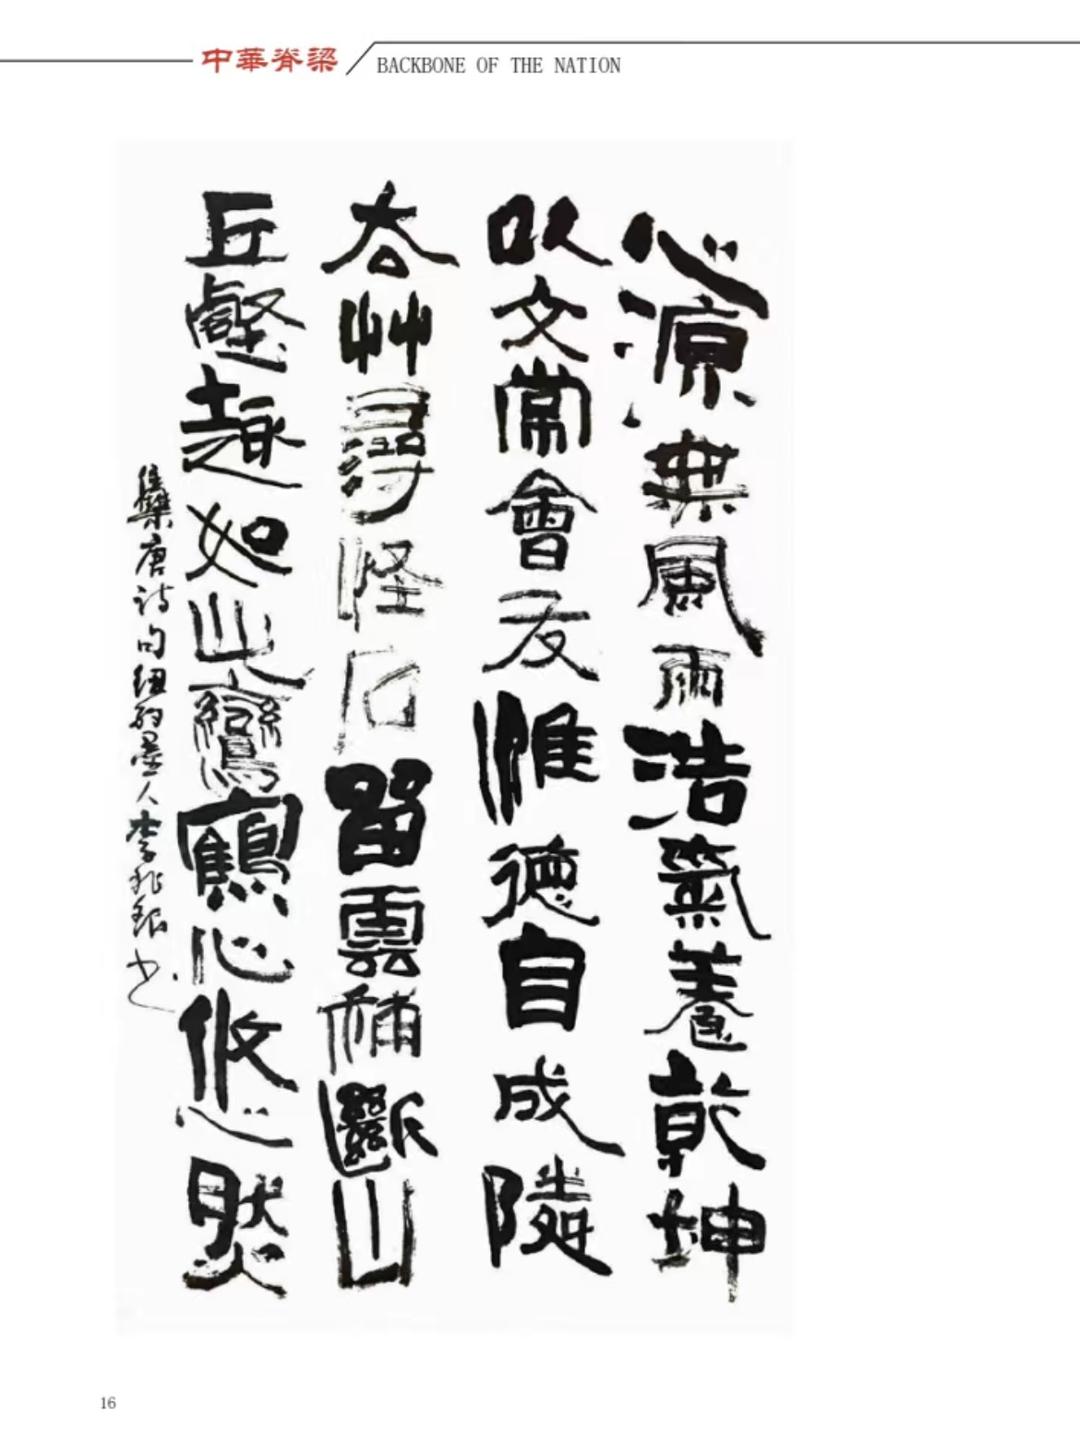 中華脊梁
BACKBONE OF THE NATION
心源無風雨浩氣養乾坤
以文常會友惟德自成隣
去艸尋怪石留雲補斷山
丘壑趣如此鸞鶴心悠然
集唐诗句纽约墨人李兆银书
16